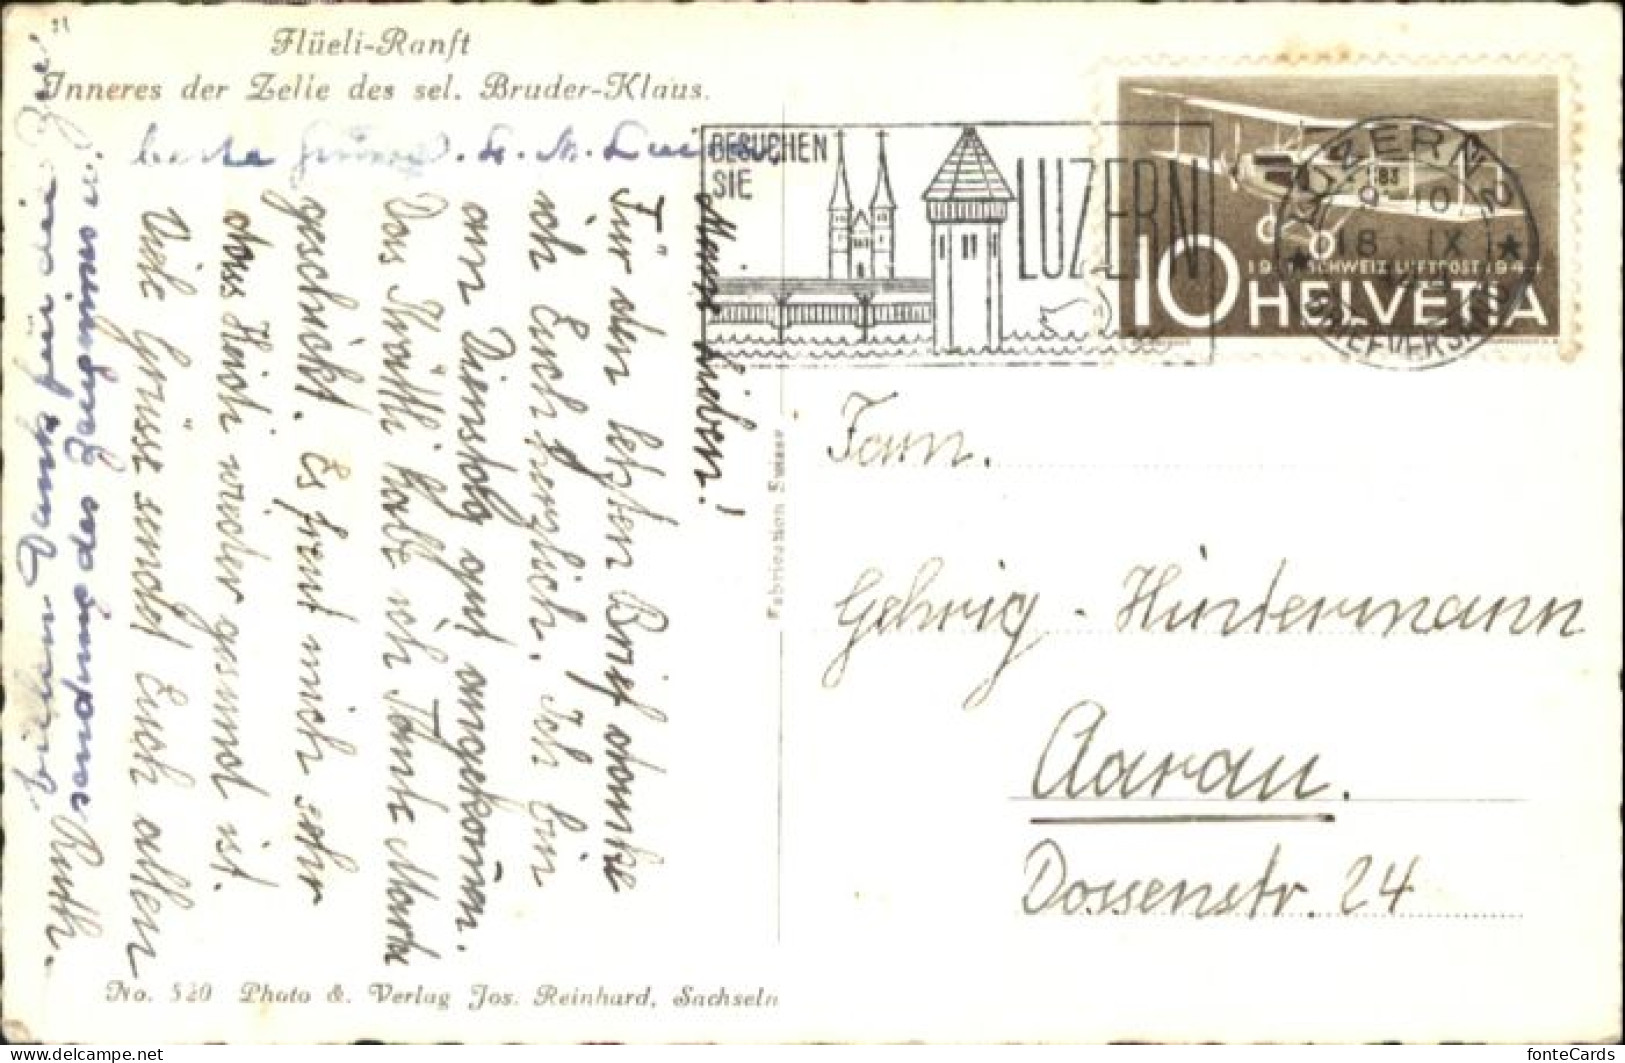 Flüeli-Ranft
Inneres der Zelle des sel. Bruder-Klaus.
BESUCHEN
SIE
LUZERN
LUZERN 2
9-10
18 IX
BRIEFVERSAND
83
SCHWEIZ. LUFTPOST 1944
10 HELVETIA
Meine Lieben!
Für den letzten Brief danke
ich Euch herzlich. Ich bin
am Dienstag gut angekom̄en.
Das Kräⱡli habe ich Tante Marta
geschickt. Es freut mich sehr
dass Heidi wieder gesund ist.
Viele Grüsse sendet Euch allen
Ruth.
vielen Dank für die
sendung des
beste
Fam.
Gehrig - Hintermann
Aarau.
Dossenstr. 24
Fabrication Suisse
No. 520 Photo & Verlag Jos. Reinhard, Sachseln
fonteCards